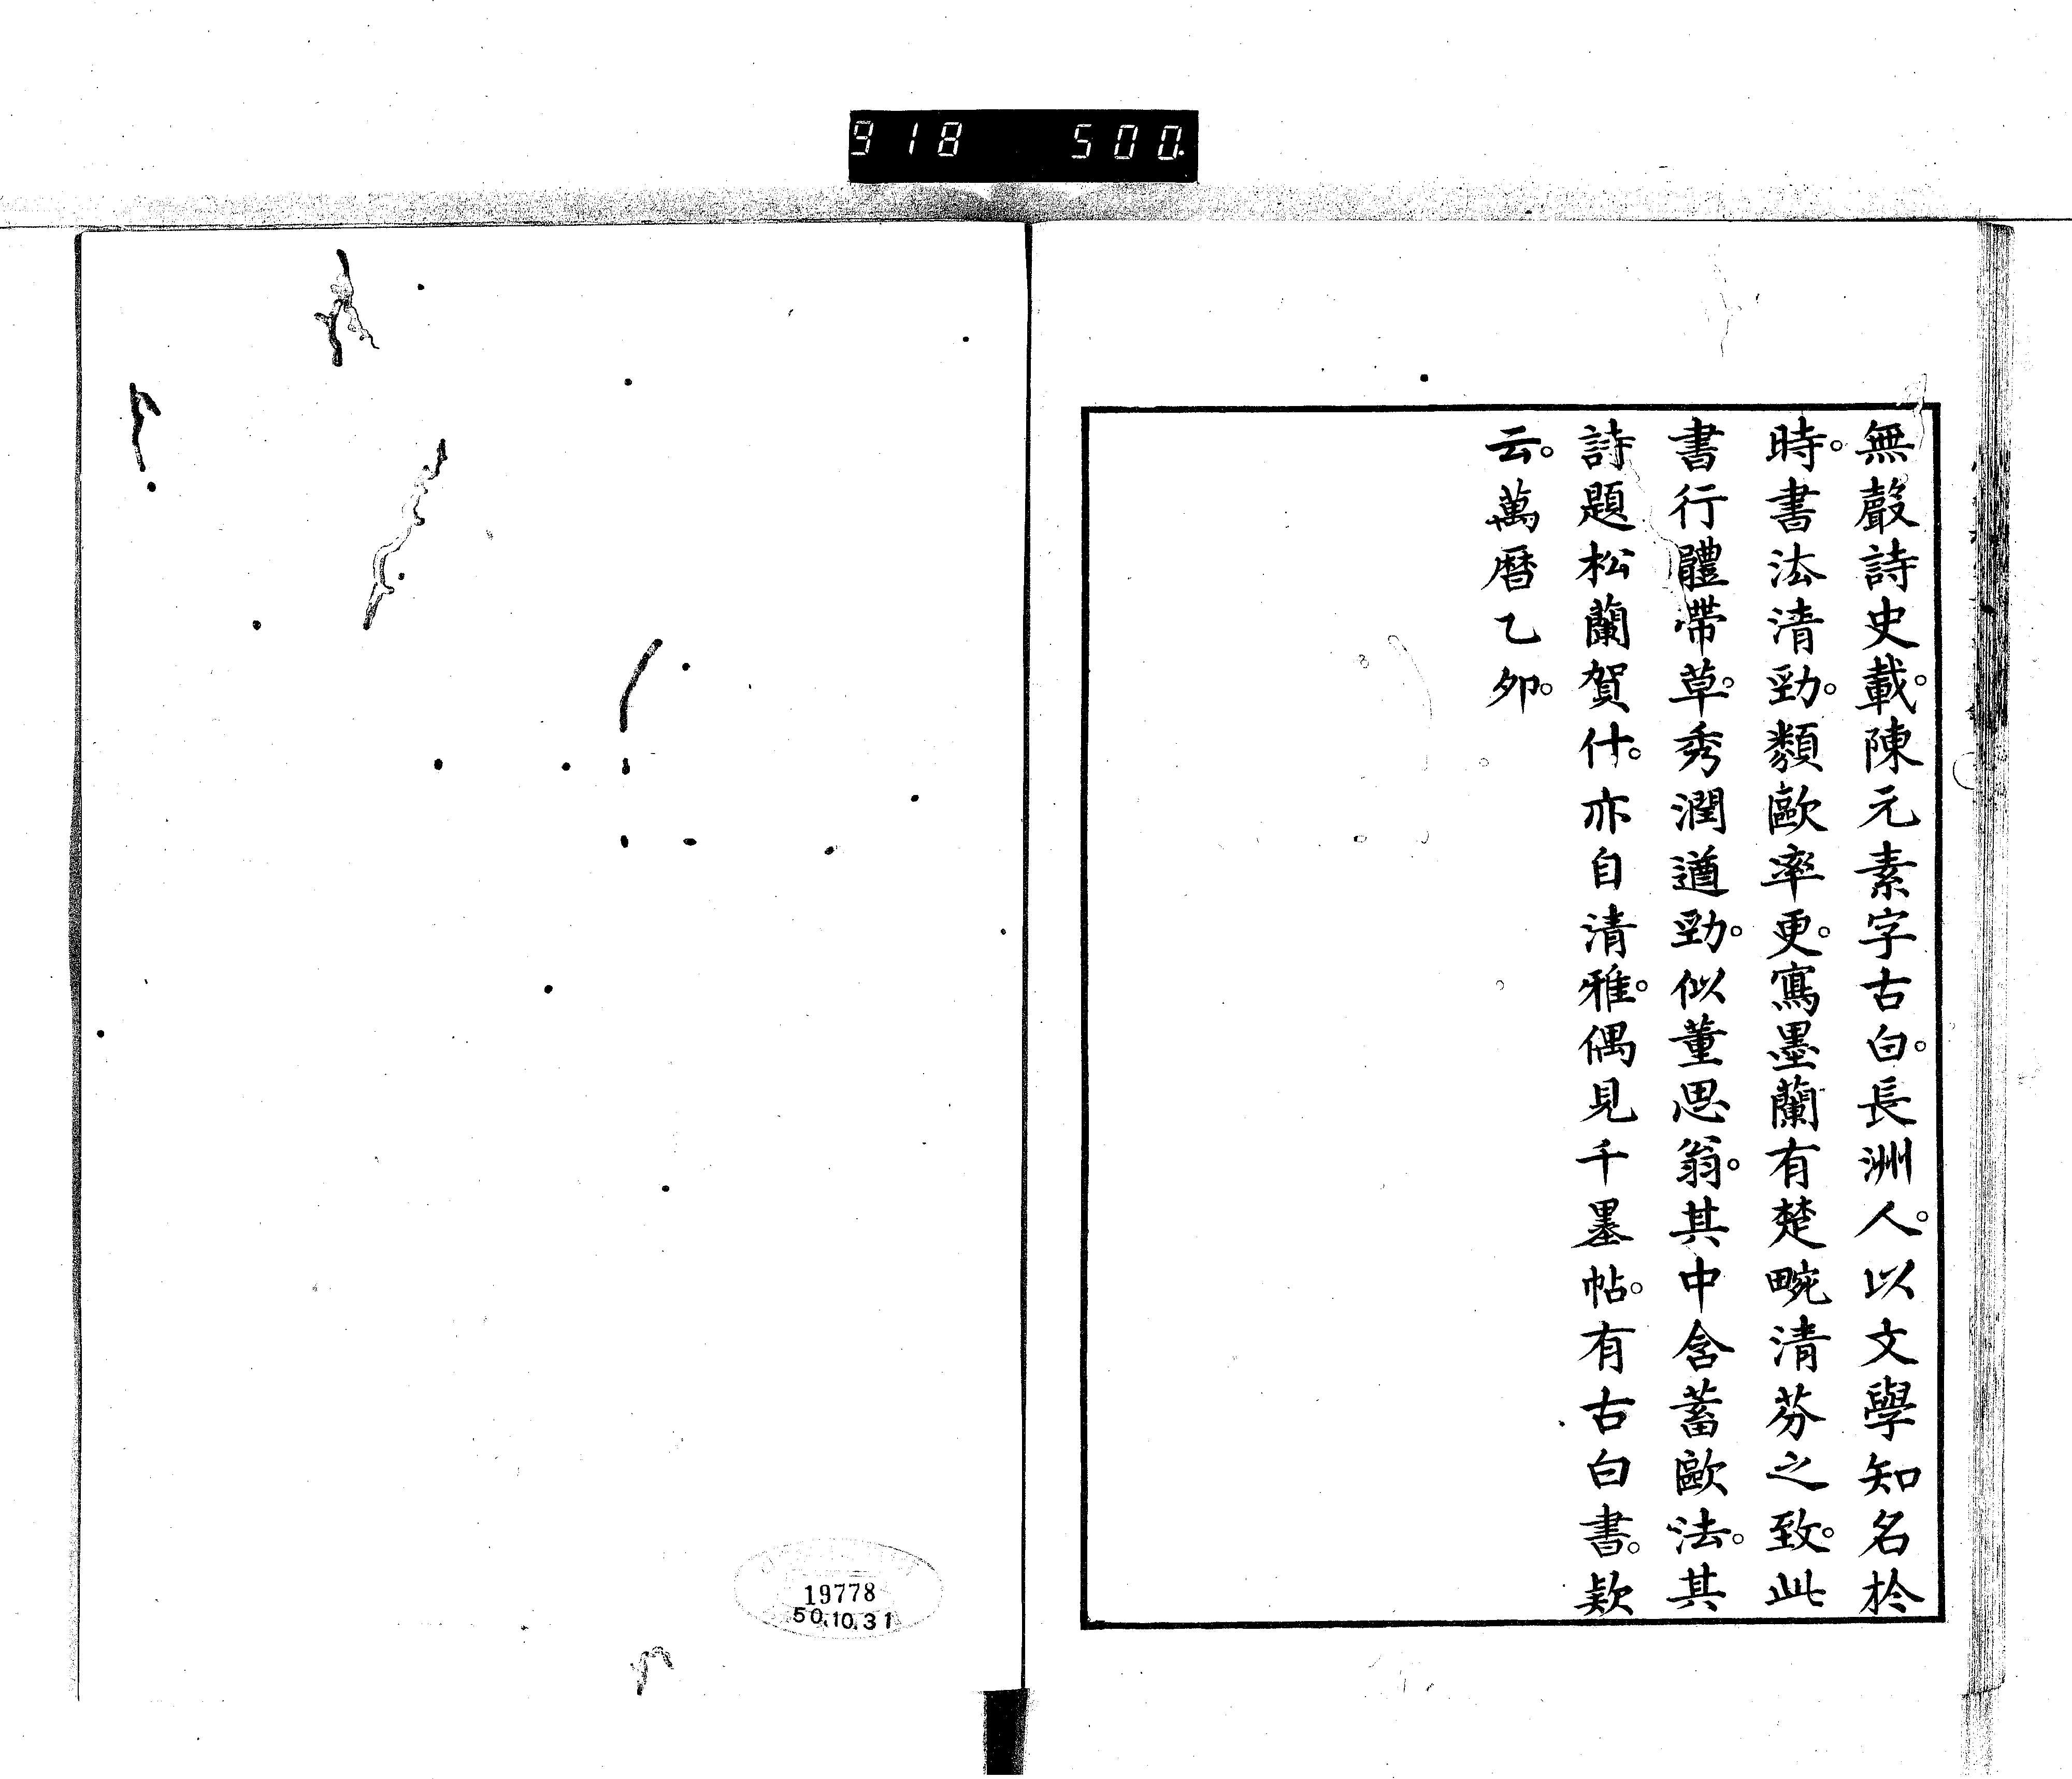 918 500.
無聲詩史載。陳元素字古白。長洲人。以文學知名於
時。書法清勁。類歐率更。寫墨蘭有楚畹清芬之致。此
書行體帶草。秀潤遒勁。似董思翁。其中含蓄歐法。其
詩題松蘭賀什。亦自清雅。偶見千墨帖。有古白書。款
云。萬曆乙卯。
19778
50.10.31